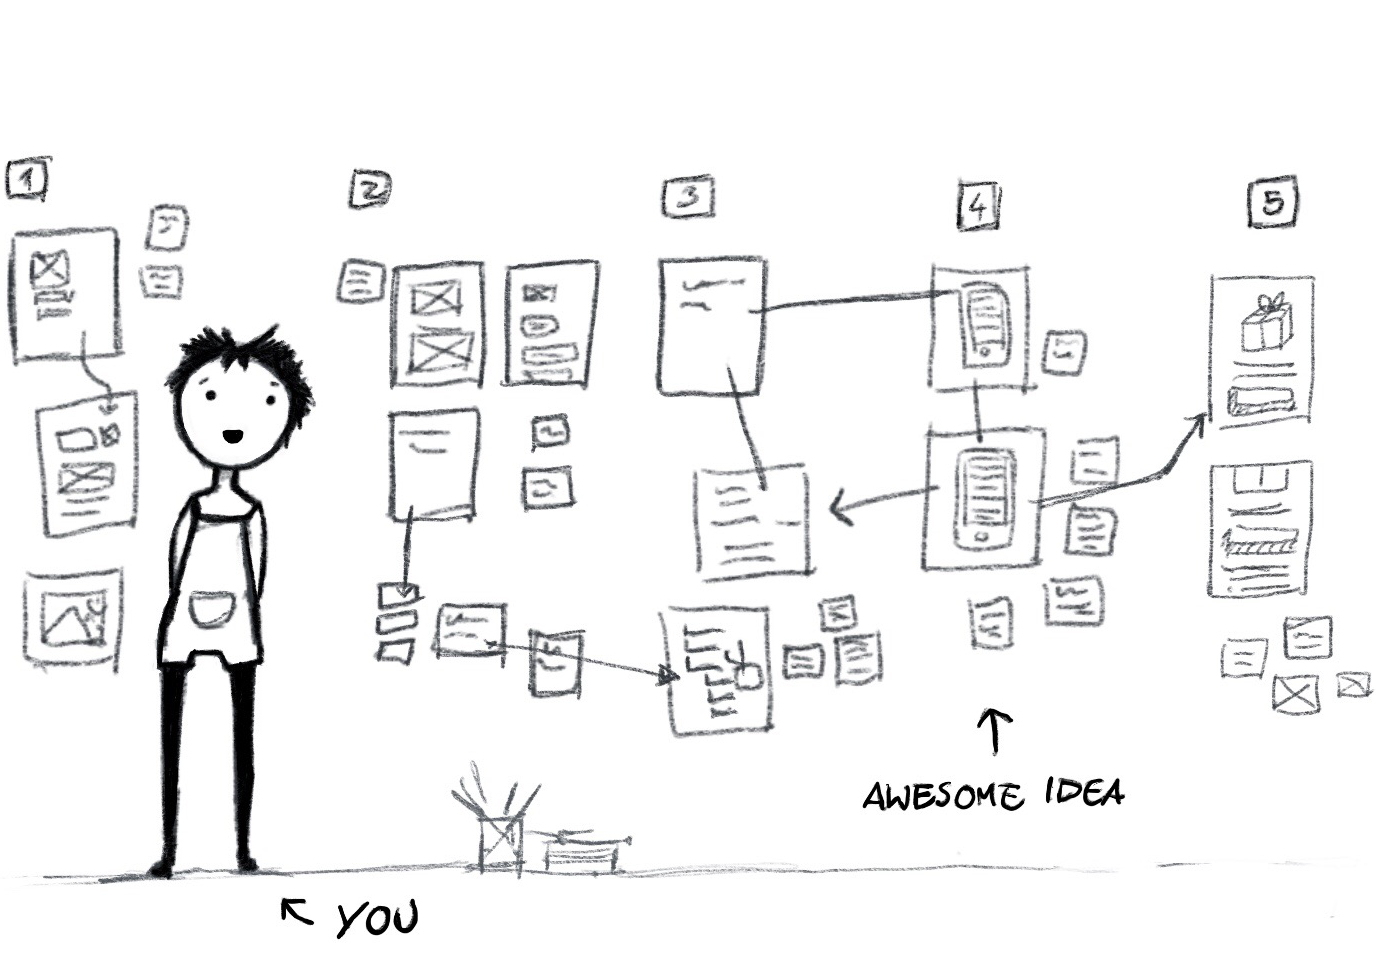 1
2
3
4
5
AWESOME IDEA
YOU